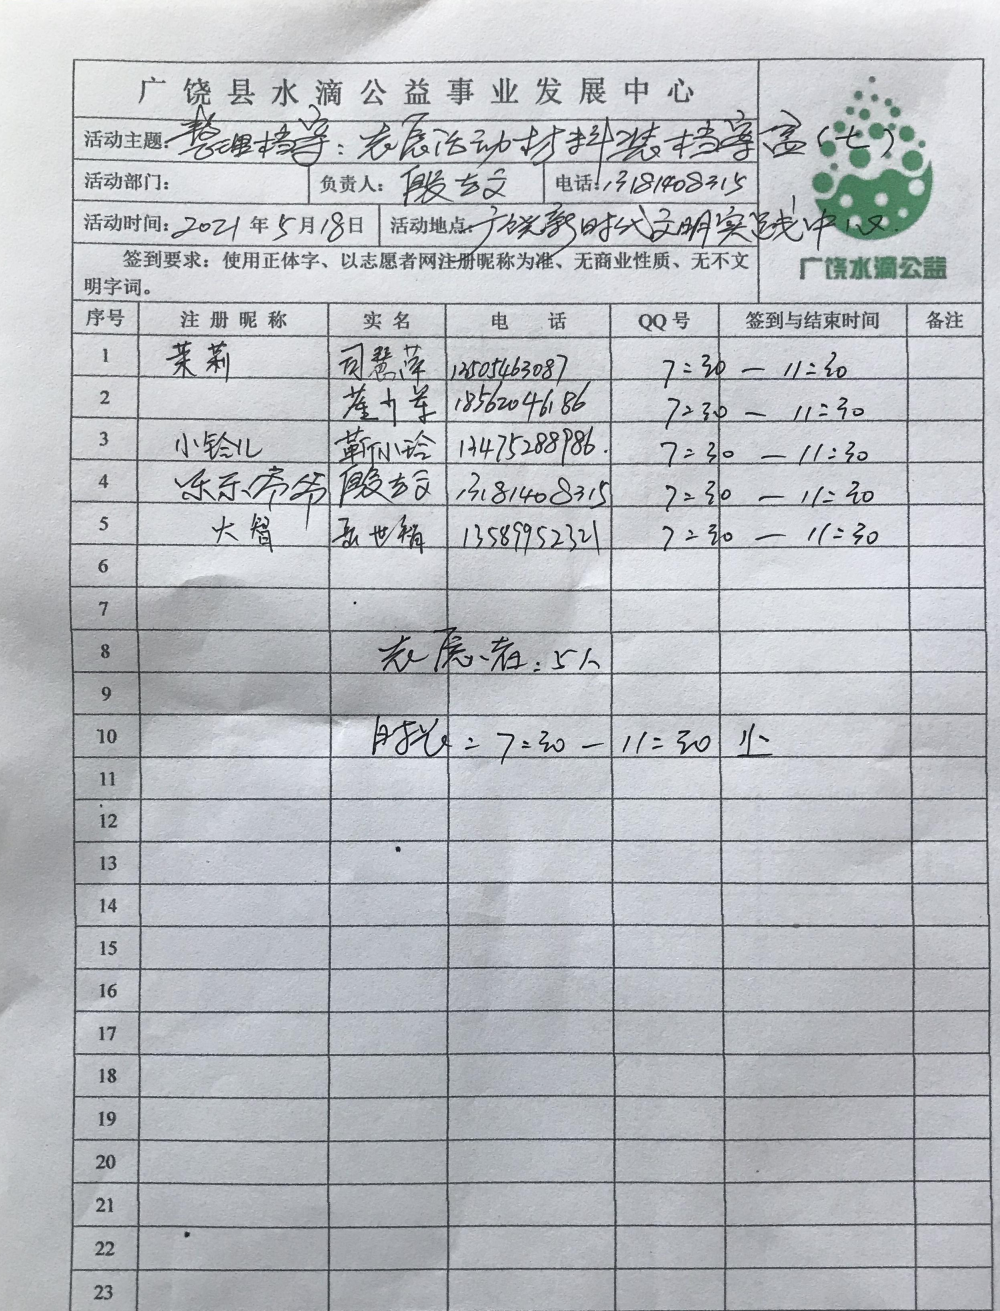 广饶县水滴公益事业发展中心
活动主题:整理档案:农展活动材料装档案盒(七)
活动部门: 负责人: 殷志文 电话:13181408315
活动时间:2021年5月18日 活动地点:广饶新时代文明实践中心.
签到要求:使用正体字、以志愿者网注册昵称为准、无商业性质、无不文
明字词。
广饶水滴公益
序号 注册昵称 实名 电 话 QQ号 签到与结束时间 备注
1 茉莉 司慧萍 13505463087 7:30 — 11:30
2 崔 军 18562046186 7:30 — 11:30
3 小铃儿 靳小玲 13475288986. 7:30 — 11:30
4 乐乐爷爷 殷志文 13181408315 7:30 — 11:30
5 大智 13589952321 7:30 — 11:30
6
7
8 :5人
9
10 时长:7:30 — 11:30
11
12
13
14
15
16
17
18
19
20
21
22
23